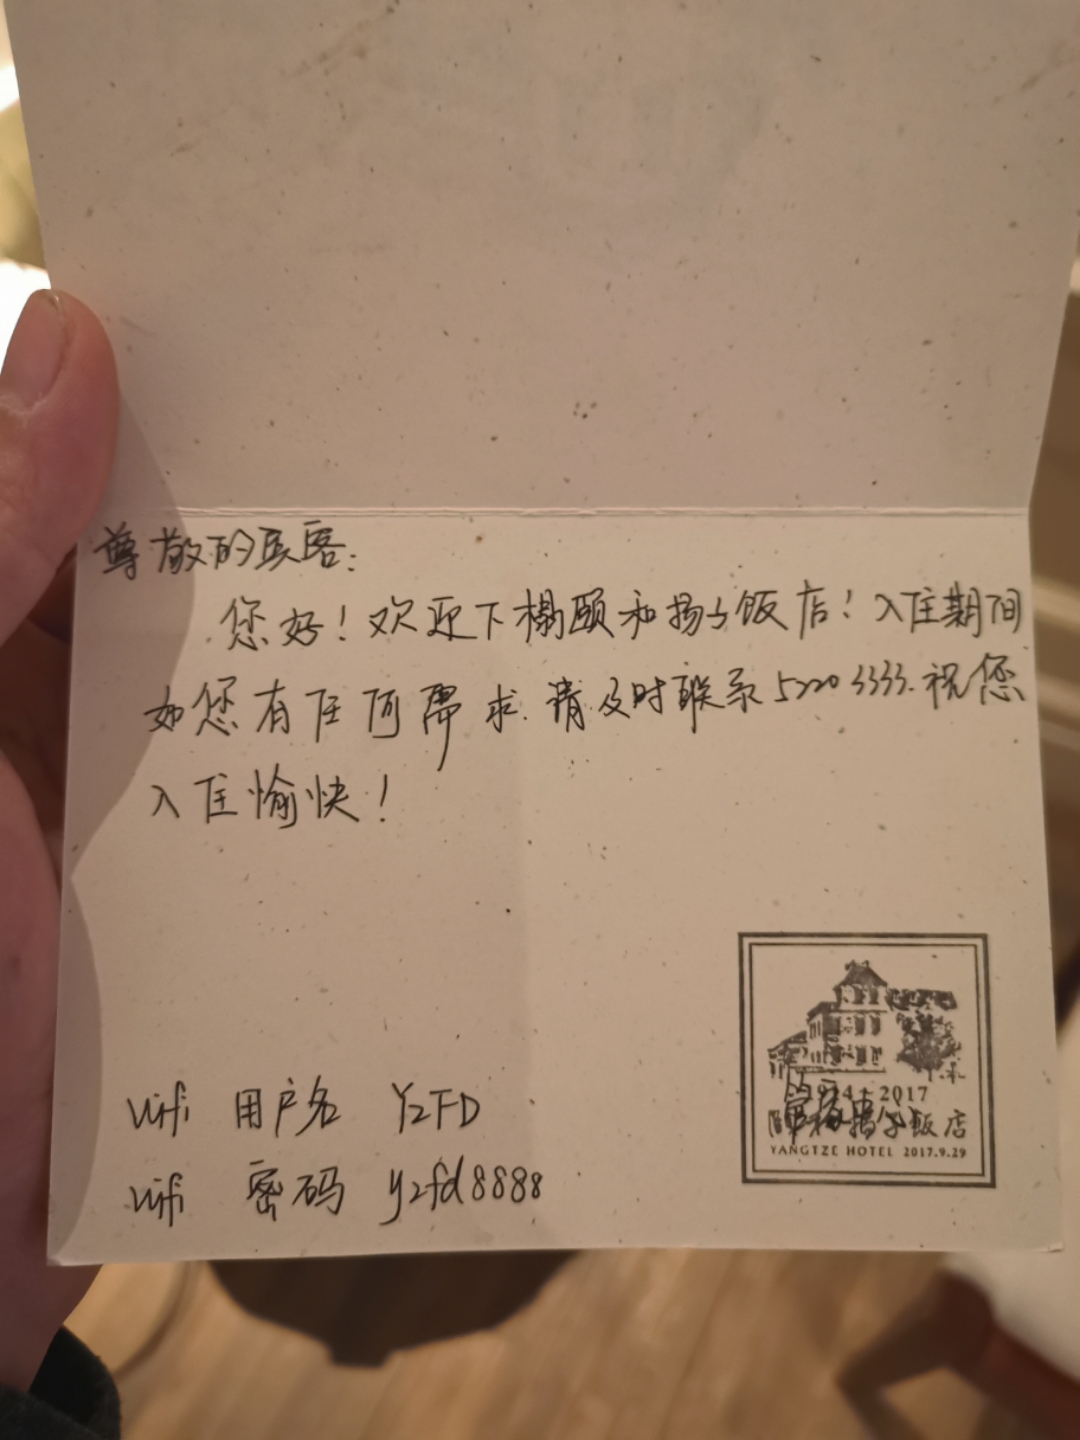 尊敬的宾客:
您好!欢迎下榻颐和扬子饭店!入住期间
如您有任何需求.请及时联系52203333.祝您
入住愉快!
wifi 用户名 YZFD
wifi 密码 yzfd8888
1914-2017
饭店
YANGTZE HOTEL 2017.9.29